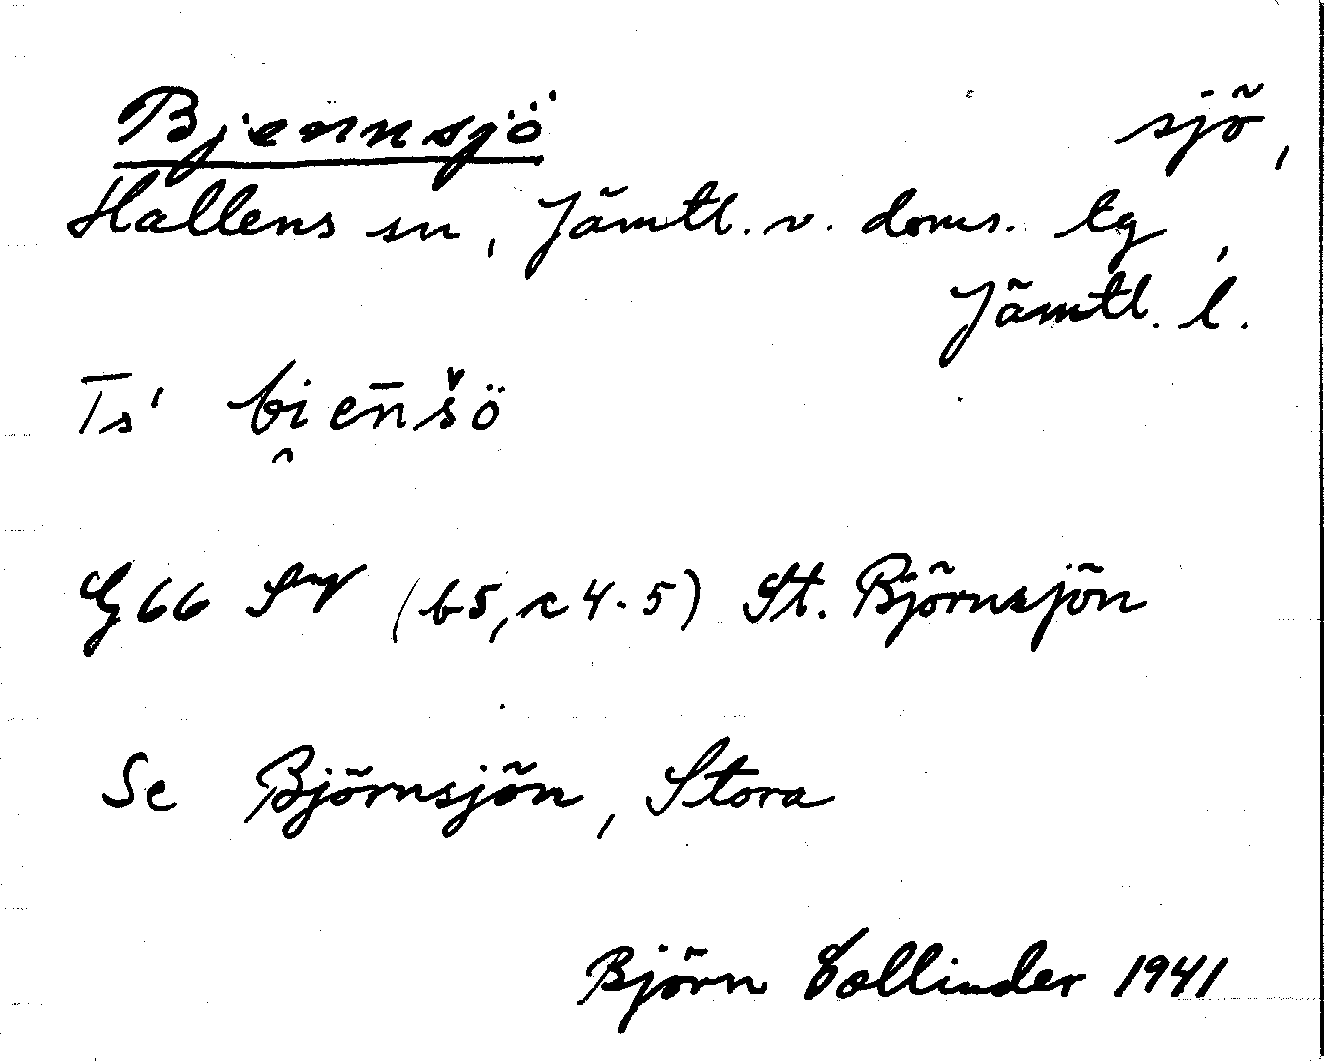 Bjennsjö sjö,
Hallens sn, Jämtl. v. doms. tg,
Jämtl. l.
Ts' bi̯en̄šö
G66 SV (b5, c4-5) St. Björnsjön
Se Björnsjön, Stora
Björn Collinder 1941